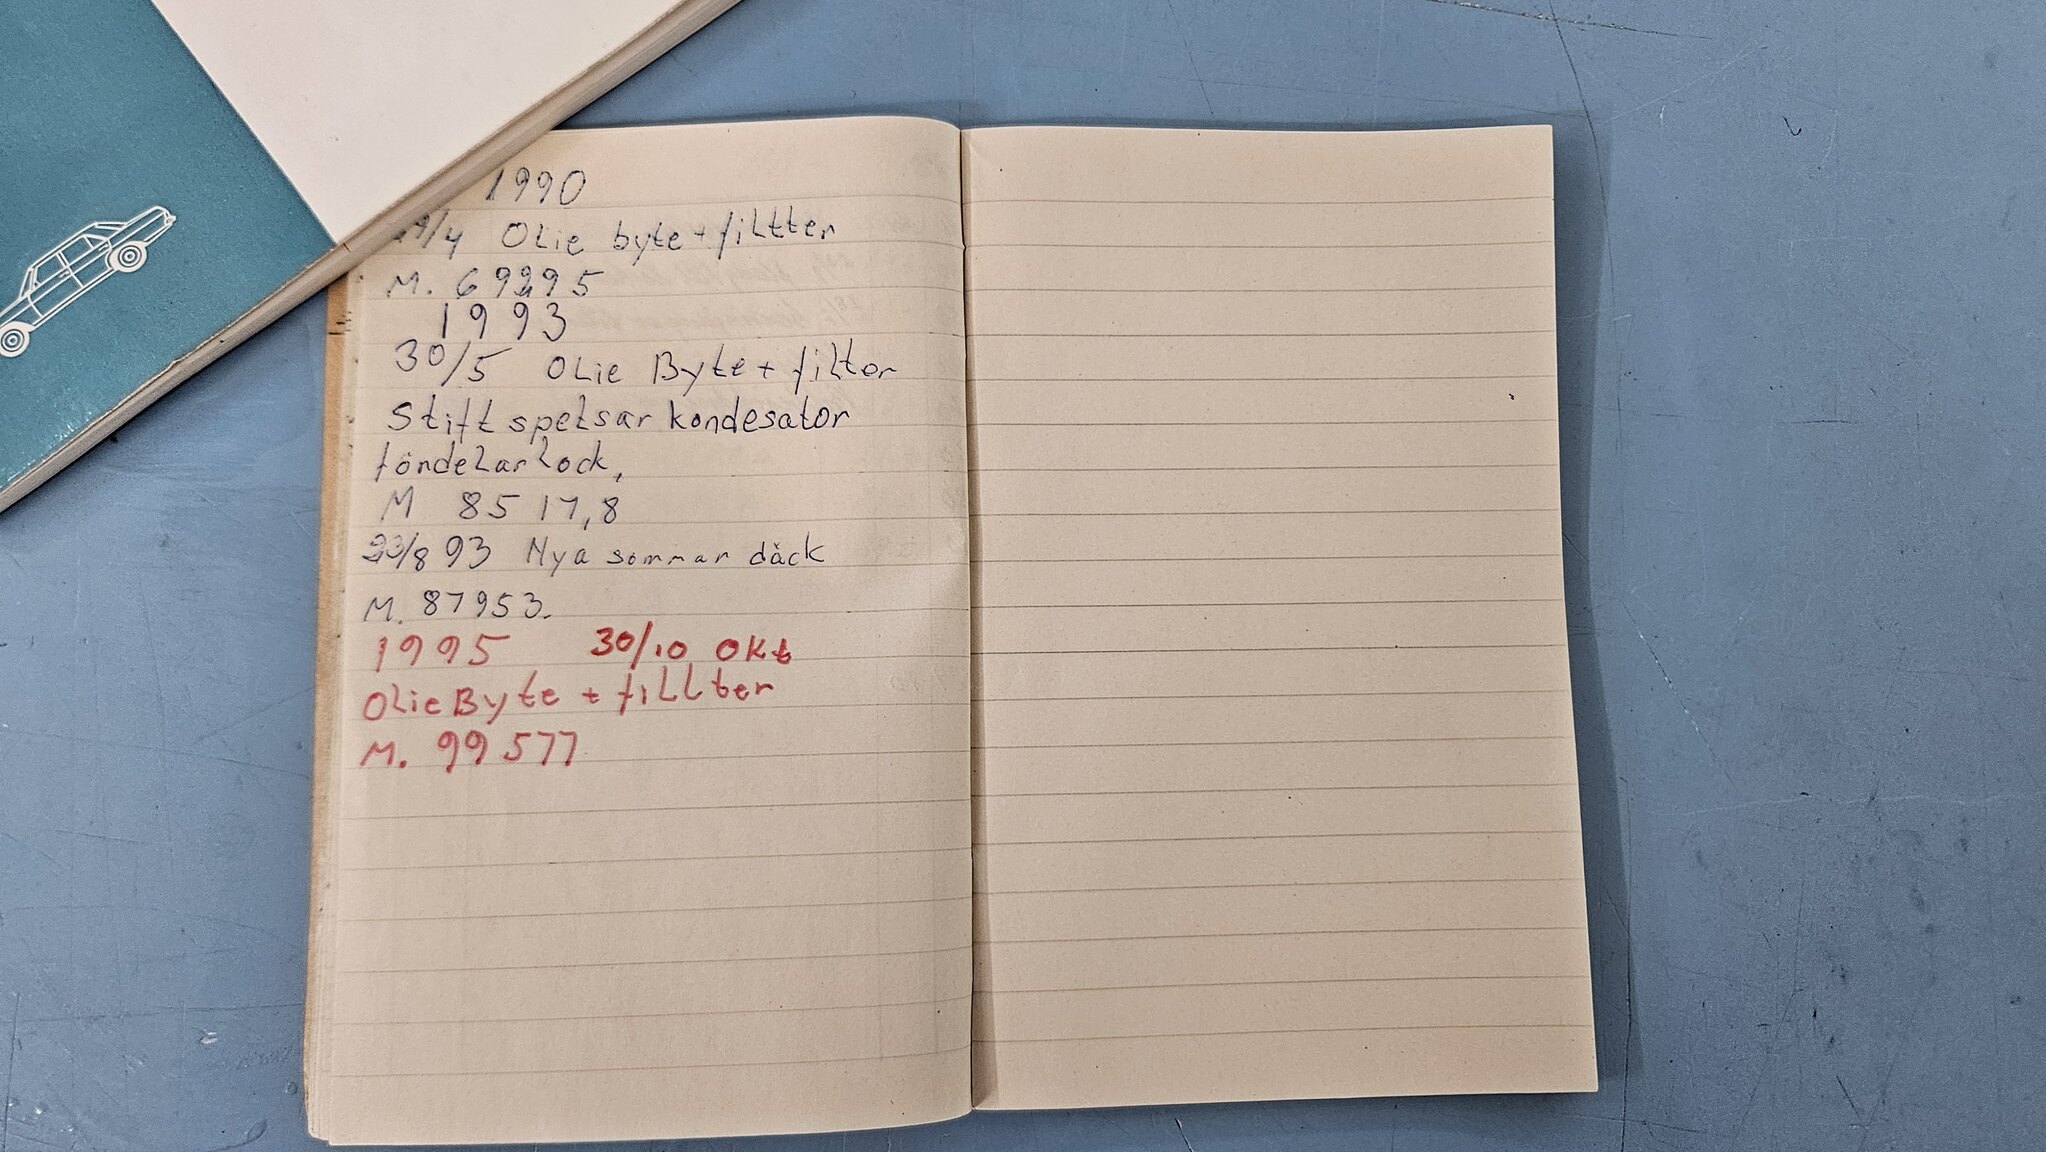 1990
/4 Olie byte + filtter
M. 69295
1993
30/5 Olie Byte + filter
Stift spetsar kondesator
föndelarlock,
M 8517,8
23/8 93 Nya sommar däck
M. 87953.
1995 30/10 Okt
Olie Byte + fillter
M. 99577